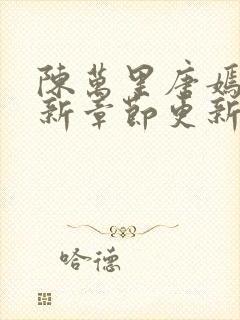 陳萬里唐嫣
新章節更新
哈德